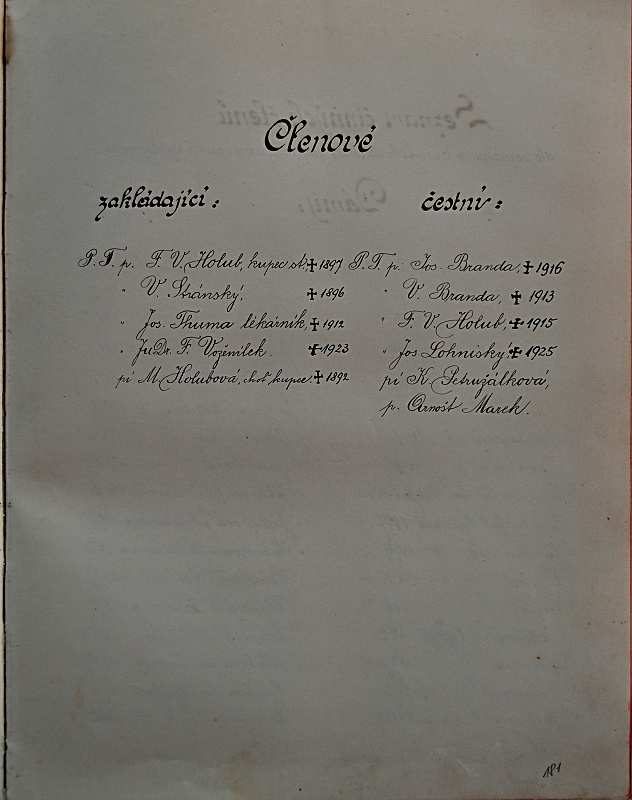 Členové
zakládající:
P. T. p. F. V. Holub, kupec st, ✝ 1897
" V. Stránský, ✝ 1896
" Jos. Thuma lékárník, ✝ 1912
" JuDr. F. Voženílek. ✝ 1923
pí M. Holubová, choť kupce. ✝ 1892
čestní:
P. T. p. Jos. Branda, ✝ 1916
" V. Branda, ✝ 1913
" F. V. Holub, ✝ 1915
" Jos Lohniský, ✝ 1925
pí K. Petružálková,
p. Arnošt Marek.
181